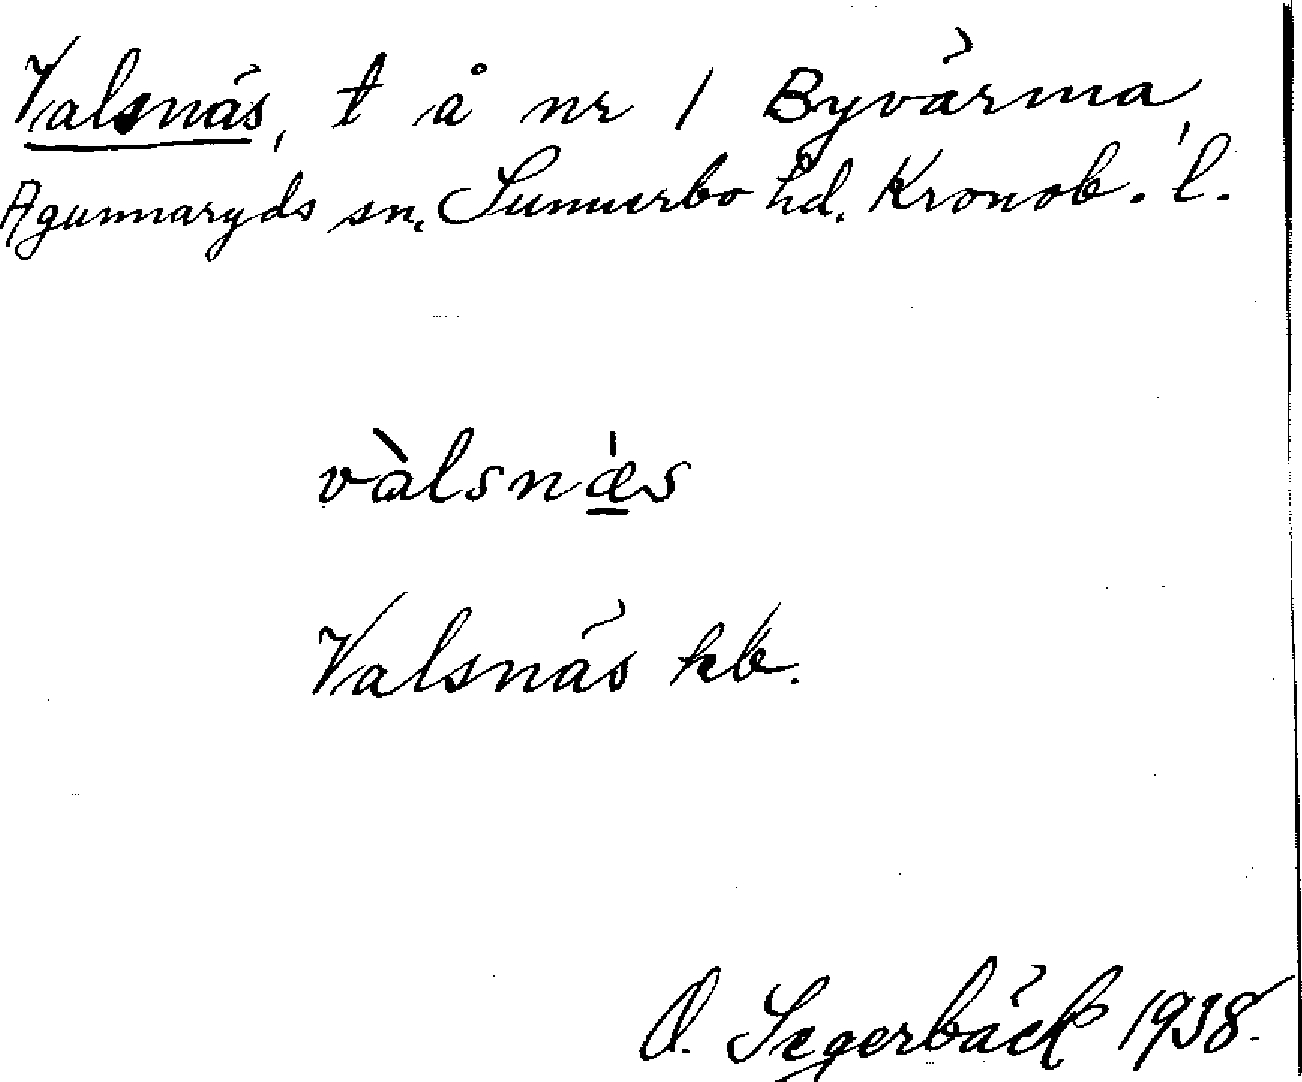 Valsnäs, t å nr 1 Byvärma,
Agunnaryds sn, Sunnerbo hd. Kronob. l.
vàlsnǽ̲s
Valsnäs kb.
O. Segerbäck 1938.